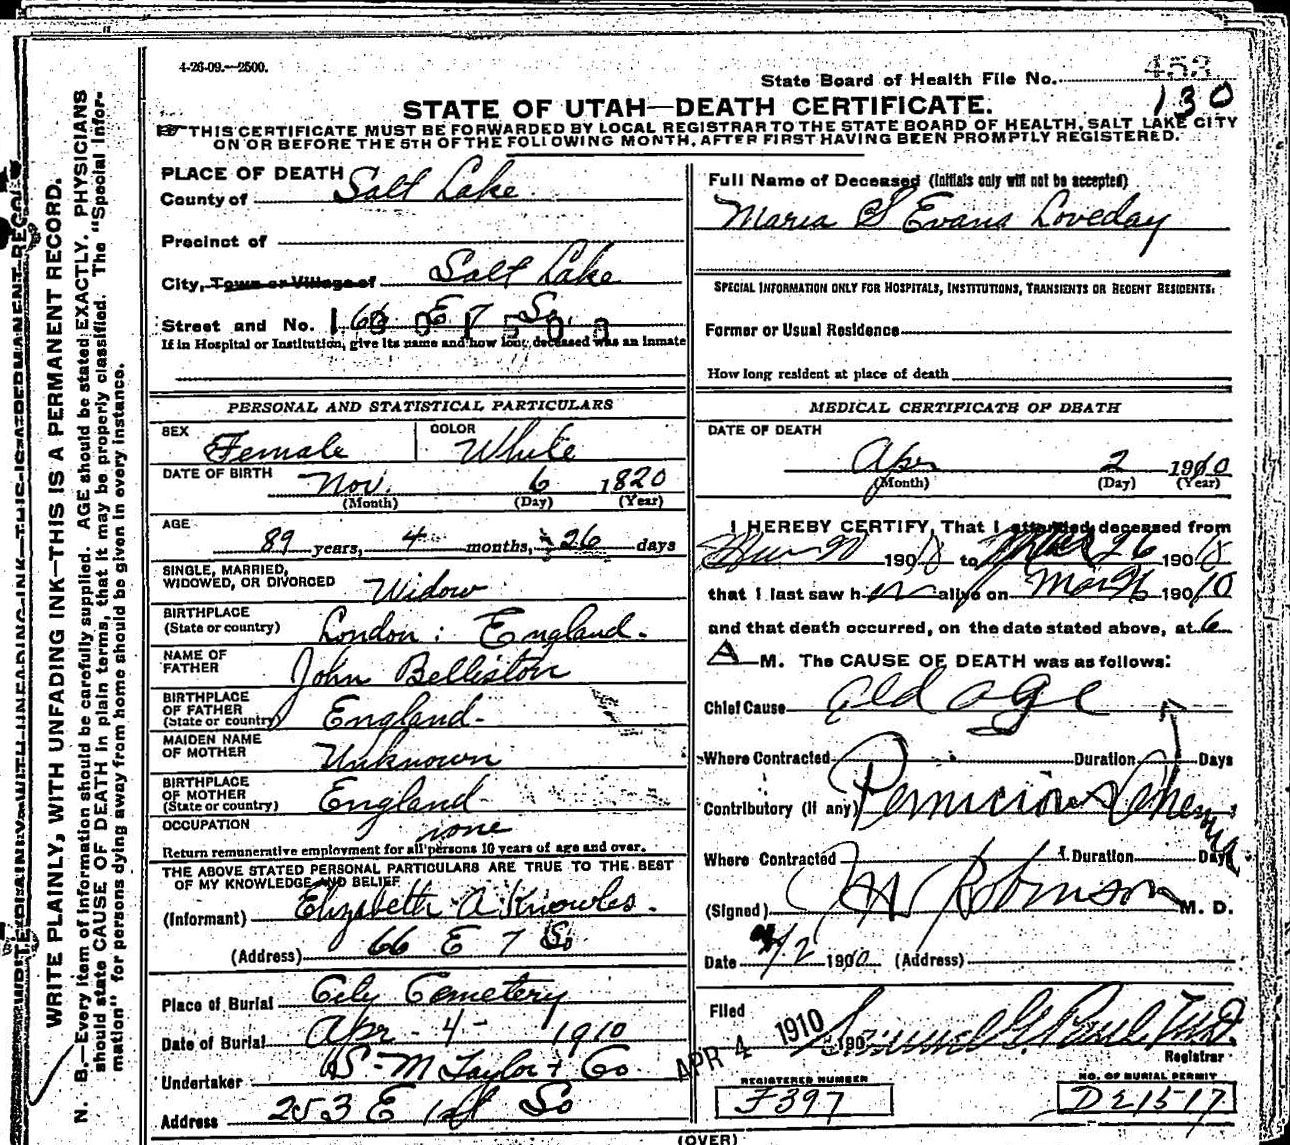 4-26-09.—2500.
State Board of Health File No. 453
130
STATE OF UTAH—DEATH CERTIFICATE.
THIS CERTIFICATE MUST BE FORWARDED BY LOCAL REGISTRAR TO THE STATE BOARD OF HEALTH, SALT LAKE CITY
ON OR BEFORE THE 5TH OF THE FOLLOWING MONTH, AFTER FIRST HAVING BEEN PROMPTLY REGISTERED.
WRITE PLAINLY, WITH UNFADING INK—THIS IS A PERMANENT RECORD.
N. B.—Every item of information should be carefully supplied. AGE should be stated EXACTLY. PHYSICIANS
should state CAUSE OF DEATH in plain terms, that it may be properly classified. The "Special Infor-
mation" for persons dying away from home should be given in every instance.
PLACE OF DEATH
County of Salt Lake
Precinct of
City, Town or Village of Salt Lake
Street and No. 66 E 7 So.
If in Hospital or Institution, give its name and how long deceased was an inmate
PERSONAL AND STATISTICAL PARTICULARS
SEX Female COLOR White
DATE OF BIRTH Nov. 6 1820
(Month) (Day) (Year)
AGE 89 years, 4 months, 26 days
SINGLE, MARRIED,
WIDOWED, OR DIVORCED Widow
BIRTHPLACE
(State or country) London: England.
NAME OF
FATHER John Belliston
BIRTHPLACE
OF FATHER
(State or country) England-
MAIDEN NAME
OF MOTHER Unknown
BIRTHPLACE
OF MOTHER
(State or country) England
OCCUPATION none
Return remunerative employment for all persons 10 years of age and over.
THE ABOVE STATED PERSONAL PARTICULARS ARE TRUE TO THE BEST
OF MY KNOWLEDGE AND BELIEF
(Informant) Elizabeth A Knowles.
(Address) 66 E 7 So
Place of Burial City Cemetery
Date of Burial Apr - 4 - 1910
Undertaker S-M Taylor & Co
Address 253 E 1st So
Full Name of Deceased (Initials only will not be accepted)
Maria S Evans Loveday
SPECIAL INFORMATION ONLY FOR HOSPITALS, INSTITUTIONS, TRANSIENTS OR RECENT RESIDENTS:
Former or Usual Residence
How long resident at place of death
MEDICAL CERTIFICATE OF DEATH
DATE OF DEATH
Apr 2 1910
(Month) (Day) (Year)
I HEREBY CERTIFY, That I attended deceased from
190 to Mar 26 190
that I last saw her alive on Mar 26 190 10
and that death occurred, on the date stated above, at 6
A M. The CAUSE OF DEATH was as follows:
Chief Cause Old age
Where Contracted Duration Days
Contributory (if any) Pernicious Anemia
Where Contracted Duration Days
(Signed) Robinson M. D.
Date 4/2 1910 (Address)
Filed APR 4 1910 190 Samuel G. Paul, M.D.
Registrar
REGISTERED NUMBER
F397
NO. OF BURIAL PERMIT
D21517
(OVER)